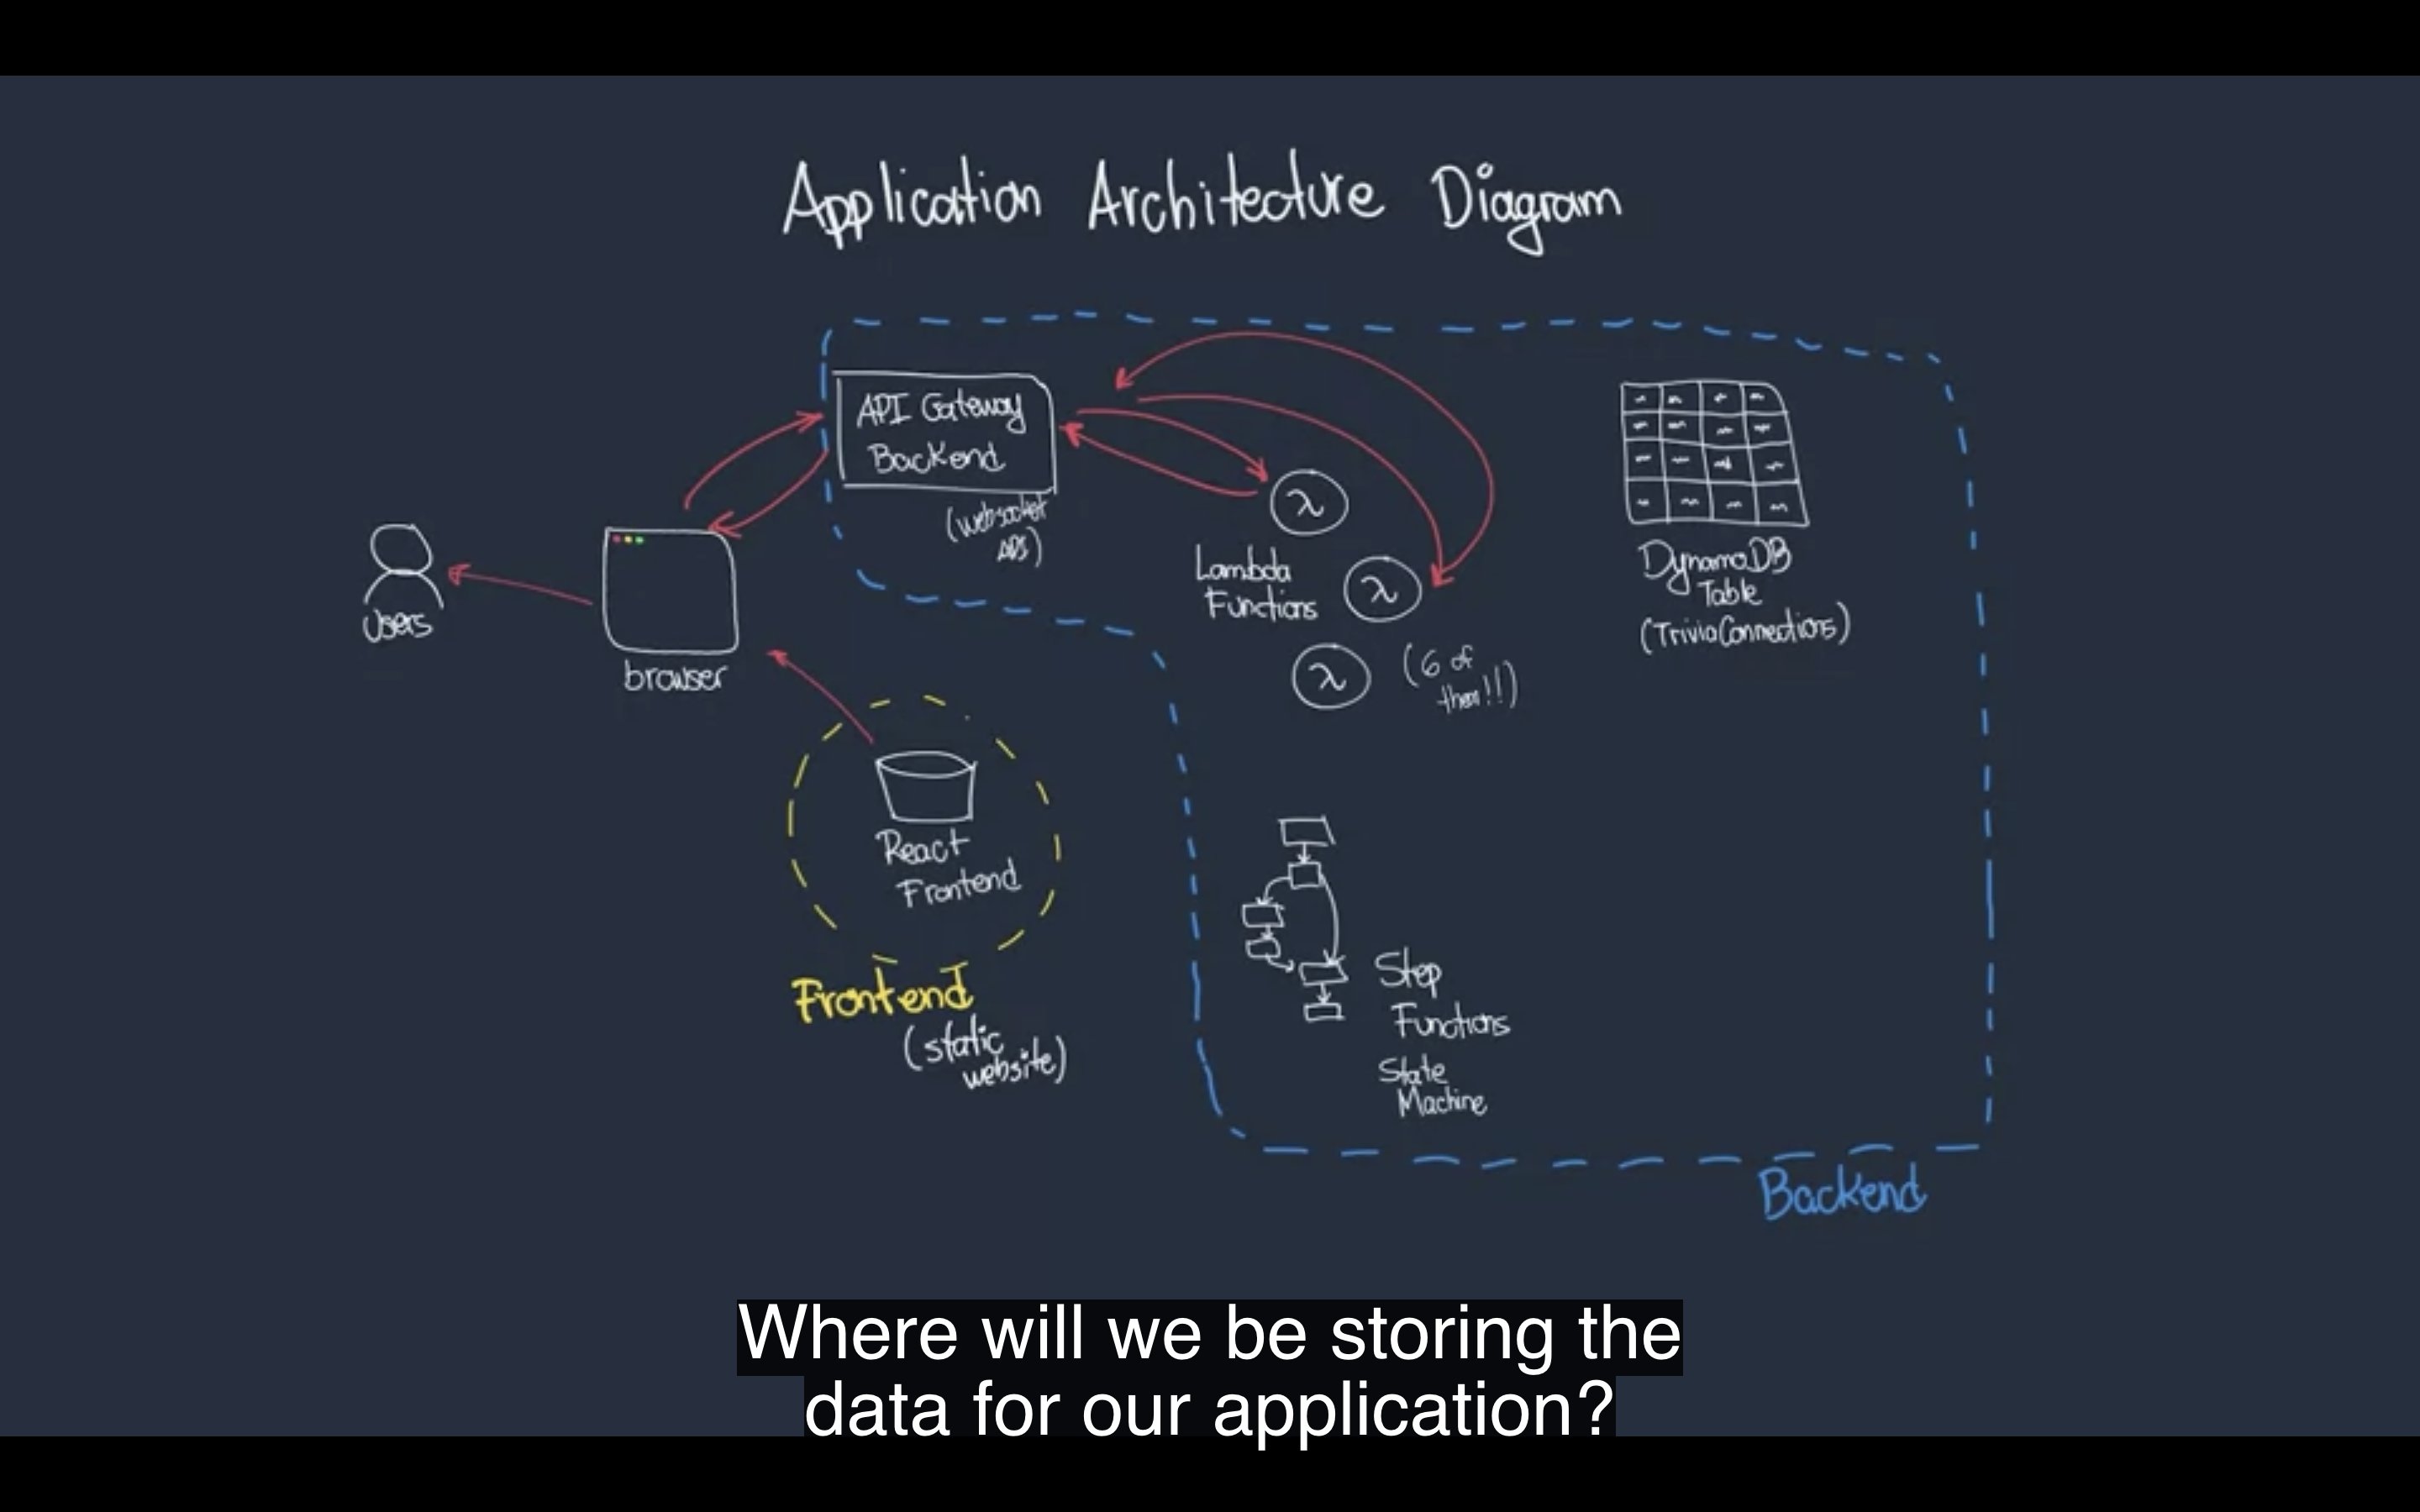 Application Architecture Diagram
API Gateway
Backend
(websocket
API)
Users
browser
λ
Lambda
Functions
λ
λ
(6 of
them!!)
DynamoDB
Table
(TriviaConnections)
React
Frontend
Frontend
(static
website)
Step
Functions
State
Machine
Backend
Where will we be storing the
data for our application?